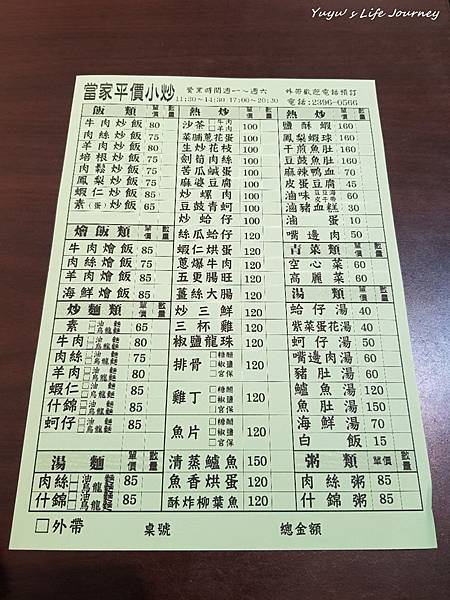 Yuyu's Life Journey
當家平價小炒 營業時間週一～週六 外帶歡迎電話預訂
11:30～14:30 17:00～20:30 電話:2396-0566
飯類 單價 數量
牛肉炒飯 80
肉絲炒飯 75
羊肉炒飯 80
培根炒飯 75
肉鬆炒飯 75
鳳梨炒飯 75
蝦仁炒飯 85
素(蛋)炒飯 65
燴飯類 單價 數量
牛肉燴飯 85
肉絲燴飯 85
羊肉燴飯 85
海鮮燴飯 85
炒麵類 單價 數量
素 □油麵 □烏龍麵 65
牛肉 □油麵 □烏龍麵 85
肉絲 □油麵 □烏龍麵 75
羊肉 □油麵 □烏龍麵 85
蝦仁 □油麵 □烏龍麵 85
什錦 □油麵 □烏龍麵 85
蚵仔 □油麵 □烏龍麵 85
湯麵 單價 數量
肉絲 □油麵 □烏龍麵 85
什錦 □油麵 □烏龍麵 85
熱炒 單價 數量
沙茶 □牛肉 □羊肉 100
菜脯蔥蛋 100
生炒花枝 100
劍筍肉絲 100
苦瓜鹹蛋 100
麻婆豆腐 100
炒螺肉 100
豆鼓青蚵 100
炒蛤仔 100
絲瓜蛤仔 120
蝦仁烘蛋 120
蔥爆牛肉 120
五更腸旺 120
薑絲大腸 120
炒三鮮 120
三杯雞 120
椒鹽龍珠 120
排骨 □糖醋 □椒鹽 □宮保 120
雞丁 □糖醋 □椒鹽 □宮保 120
魚片 □糖醋 □椒鹽 □宮保 120
清蒸鱸魚 150
魚香烘蛋 120
酥炸柳葉魚 120
熱炒 單價 數量
鹽酥蝦 160
鳳梨蝦球 160
干煎魚肚 160
豆鼓魚肚 160
麻辣鴨血 70
皮蛋豆腐 50
滷味 60
滷豬血糕 30
滷蛋 10
嘴邊肉 50
青菜類 單價 數量
空心菜 60
高麗菜 60
湯類 單價 數量
蛤仔湯 40
紫菜蛋花湯 40
蚵仔湯 50
嘴邊肉湯 60
豬肚湯 60
鱸魚湯 120
魚肚湯 150
海鮮湯 70
白飯 15
粥類 單價 數量
肉絲粥 85
什錦粥 85
□外帶 桌號 總金額